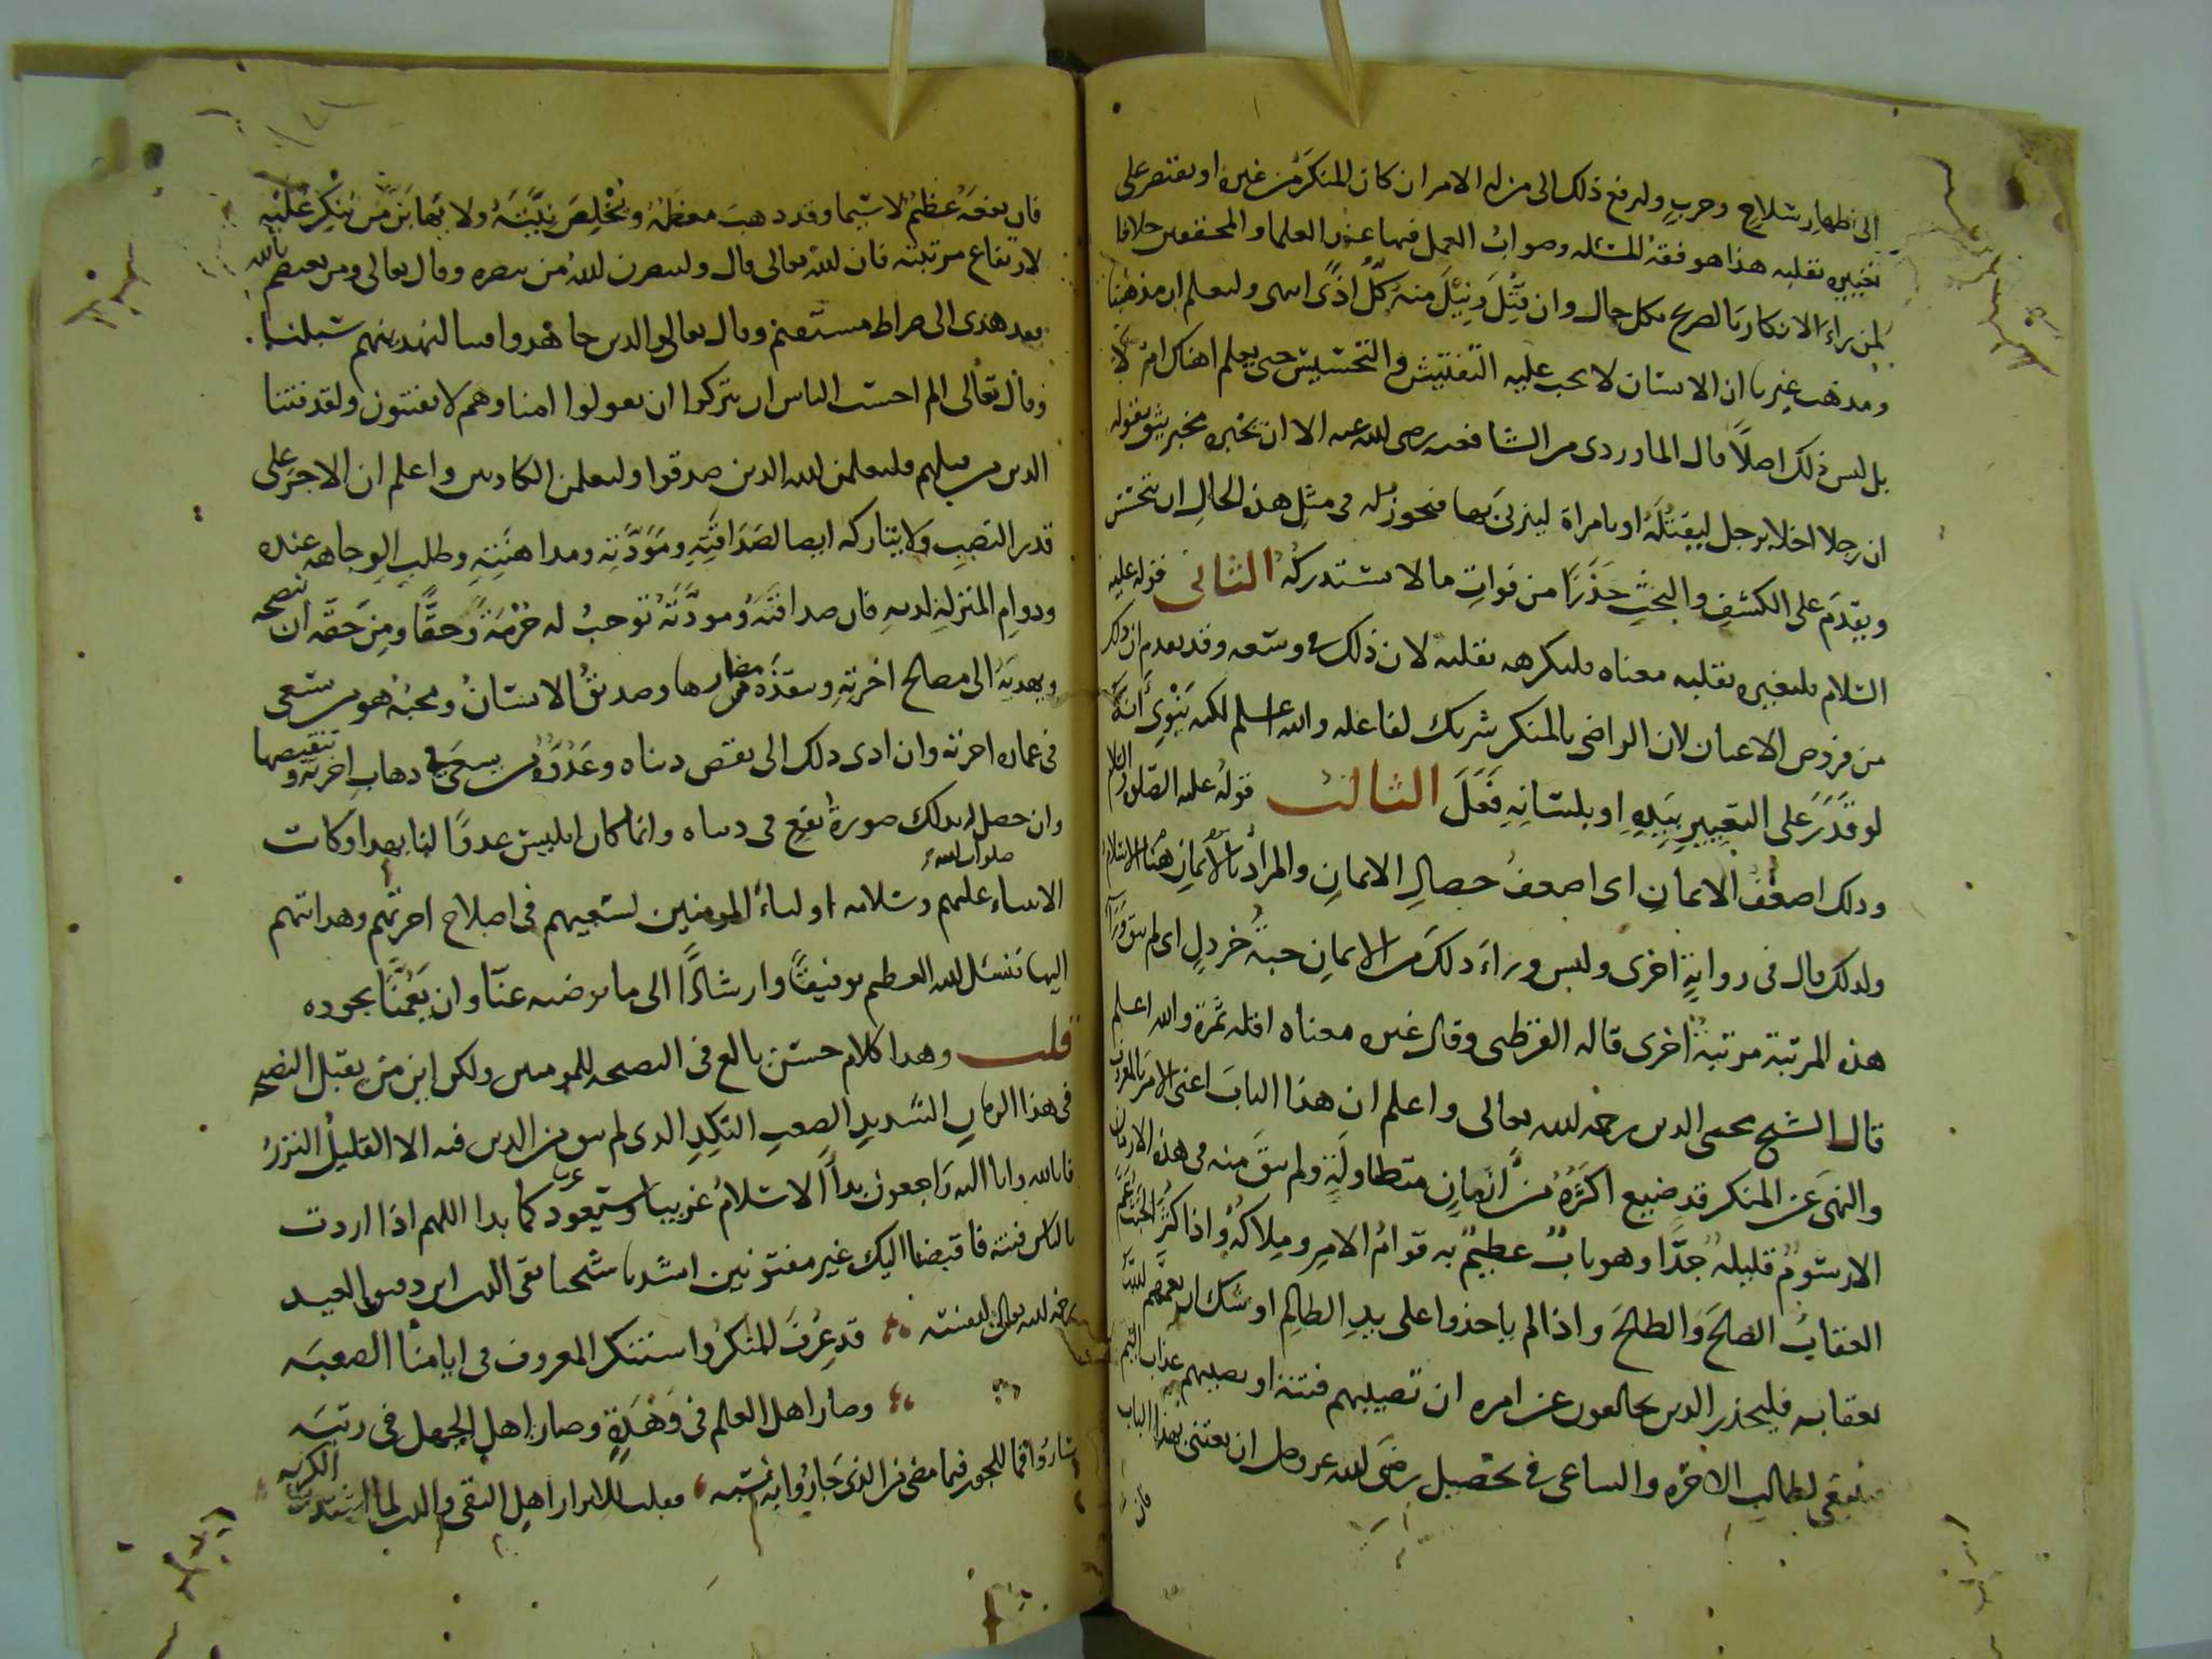 الى اظهار سلاح وحرب وليرفع ذلك الى من له الامر ان كان المنكر من غيره او يقتصر على
تغييره بقلبه هذا هو فقه المسئله وصواب العمل فيها عند العلما والمحققين خلافا
لمن راى الانكار بالصريح بكل حال وان قتل ونيل منه كل اذى انتهى وليعلم ان مذهبنا
ومذهب غيرنا ان الانسان لا يجب عليه التفتيش والتحسيس حتى يعلم اهناك امر لا
بل ليس ذلك اصلا قال الماوردى من الشافعيه رضى الله عنه الا ان يخبره مخبر يثق بقوله
ان رجلا اخلا برجل ليقتله او بامراة ليزنى بها فيجوز له فى مثل هذه الحال ان يتجسس
ويقدم على الكشف والبحث حذرا من فوات ما لا يستدركه الثانى قوله عليه
السلام فليغيره بقلبه معناه فليكرهه بقلبه لان ذلك فى وسعه وقد تقدم ان ذلك
من فروض الاعيان لان الراضى بالمنكر شريك لفاعله والله اعلم لكنه ينوى انه
لو قدر على التغيير بيده او بلسانه فعل الثالث قوله عليه الصلوة والسلام
وذلك اضعف الايمان اى اضعف خصال الايمان والمراد بالايمان هنا الاسلام
ولذلك قال فى رواية اخرى وليس وراء ذلك من الايمان حبة خردل اى لم يبق وراء
هذه المرتبة مرتبة اخرى قاله القرطبى وقال غيره معناه اقله ثمرة والله اعلم
قال الشيخ محيى الدين رحمه الله تعالى واعلم ان هذا الباب اعنى الامر بالمعروف
والنهى عن المنكر قد ضيع اكثره من ازمان متطاولة ولم يبق منه فى هذه الازمان
الا رسوم قليله جدا وهو باب عظيم به قوام الامر وملاكه واذا كثر الخبث عم
العقاب الصالح والطالح واذا لم ياخذوا على يد الظالم اوشك ان يعمهم الله
بعقابه فليحذر الذين يخالفون عن امره ان تصيبهم فتنة او يصيبهم عذاب اليم
فينبغى لطالب الاخره والساعى فى تحصيل رضى الله عز وجل ان يعتنى بهذا الباب
فان
فان نفعه عظيم لا سيما وقد ذهب معظمه ويخلص نيته ولا يهابن من ينكر عليه
لارتفاع مرتبته فان الله تعالى قال ولينصرن الله من ينصره وقال تعالى ومن يعتصم بالله
فقد هدى الى صراط مستقيم وقال تعالى والذين جاهدوا فينا لنهدينهم سبلنا
وقال تعالى الم احسب الناس ان يتركوا ان يقولوا امنا وهم لا يفتنون ولقد فتنا
الذين من قبلهم فليعلمن الله الذين صدقوا وليعلمن الكاذبين واعلم ان الاجر على
قدر النصب ولا يتاركه ايضا لصداقته ومودته ومداهنته وطلب الوجاهه عنده
ودوام المنزلة لديه فان صداقته ومودته توجب له حرمة وحقا ومن حقه ان ينصحه
ويهديه الى مصالح اخرته وينقذه من مضارها وصديق الانسان ومحبه هو من سعى
فى عمارة اخرته وان ادى ذلك الى نقص دنياه وعدوه من يسعى فى ذهاب اخرته وتنقيصها
وان حصل له بذلك صورة نفع فى دنياه وانما كان ابليس عدوا لنا بهذا وكانت
الانبياء صلوات الله عليهم وسلامه اولياء المومنين لسعيهم فى اصلاح اخرتهم وهدايتهم
اليها نسئل الله العظيم توفيقا وارشادا الى ما يرضيه عنا وان يعمنا بجوده
قلت وهذا كلام حسن بالغ فى النصيحه للمومنين ولكن اين من يقبل النصح
فى هذا الزمان الشديد الصعب النكد الذى لم يبق من الدين فيه الا القليل النزر
فانا لله وانا اليه راجعون بدا الاسلام غريبا وسيعود غريبا كما بدا اللهم اذا اردت
بالناس فتنة فاقبضنا اليك غير مفتونين انشدنا شيخنا تقى الدين ابن دقيق العيد
رحمه الله تعالى لنفسه قد عرف المنكر واستنكر المعروف فى ايامنا الصعبه
وصار اهل العلم فى وهدة وصار اهل الجهل فى رتبه
ساروا فما للجور فيما مضى من الذى جاروا به نسبه فقلت للابرار اهل التقى والدين لما اشتدت الكربه